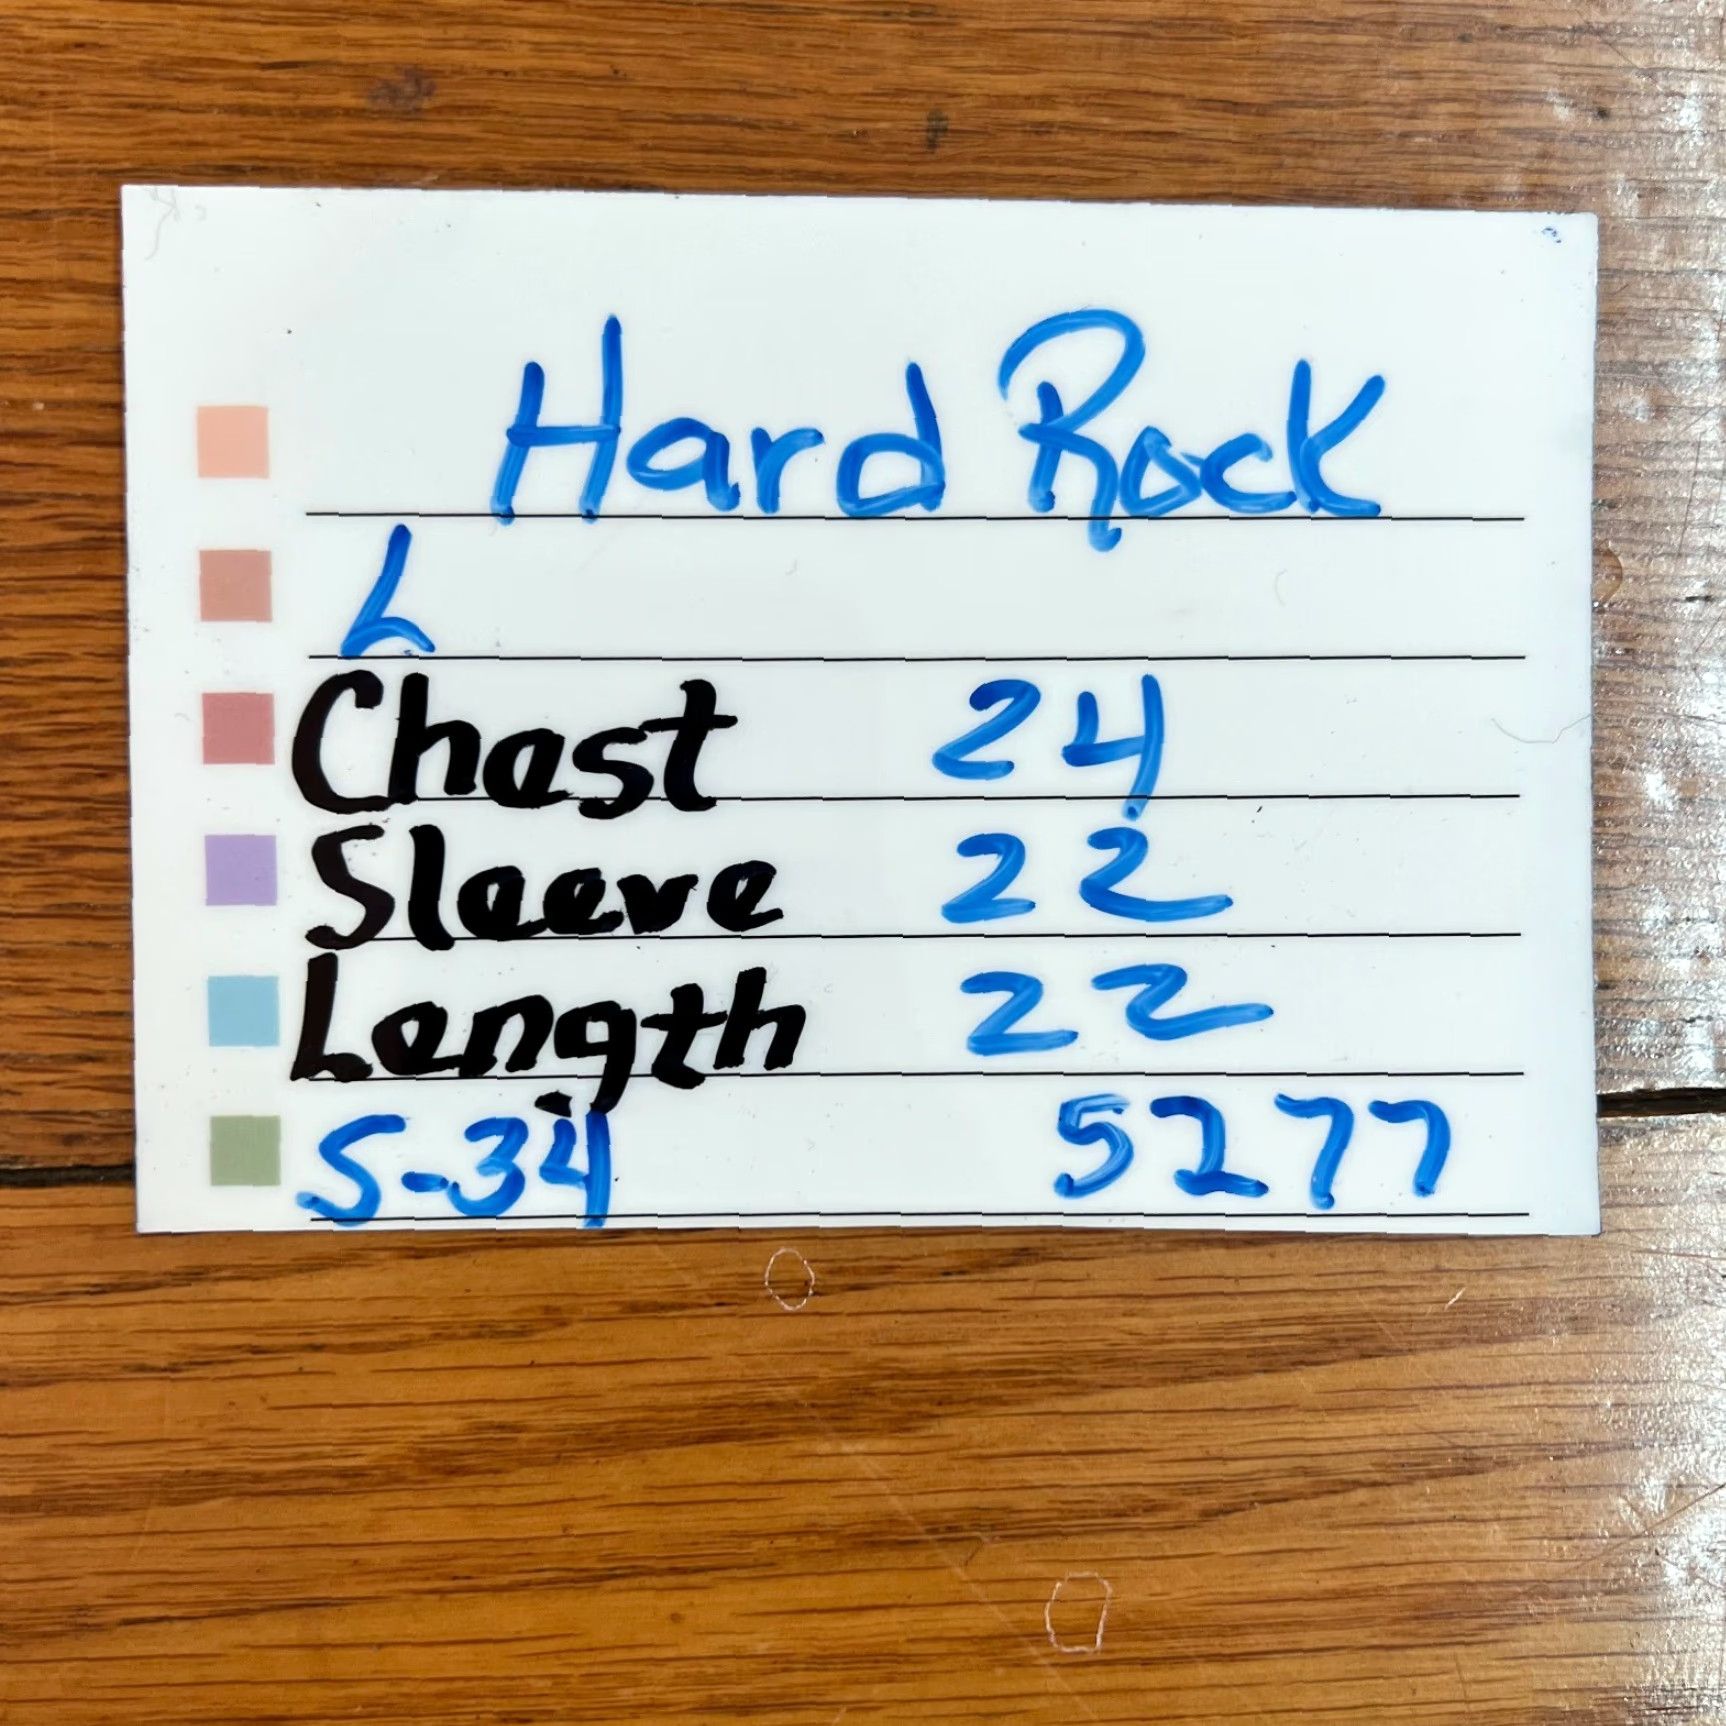 Hard Rock
L
Chest 24
Sleeve 22
Length 22
S-34 5277